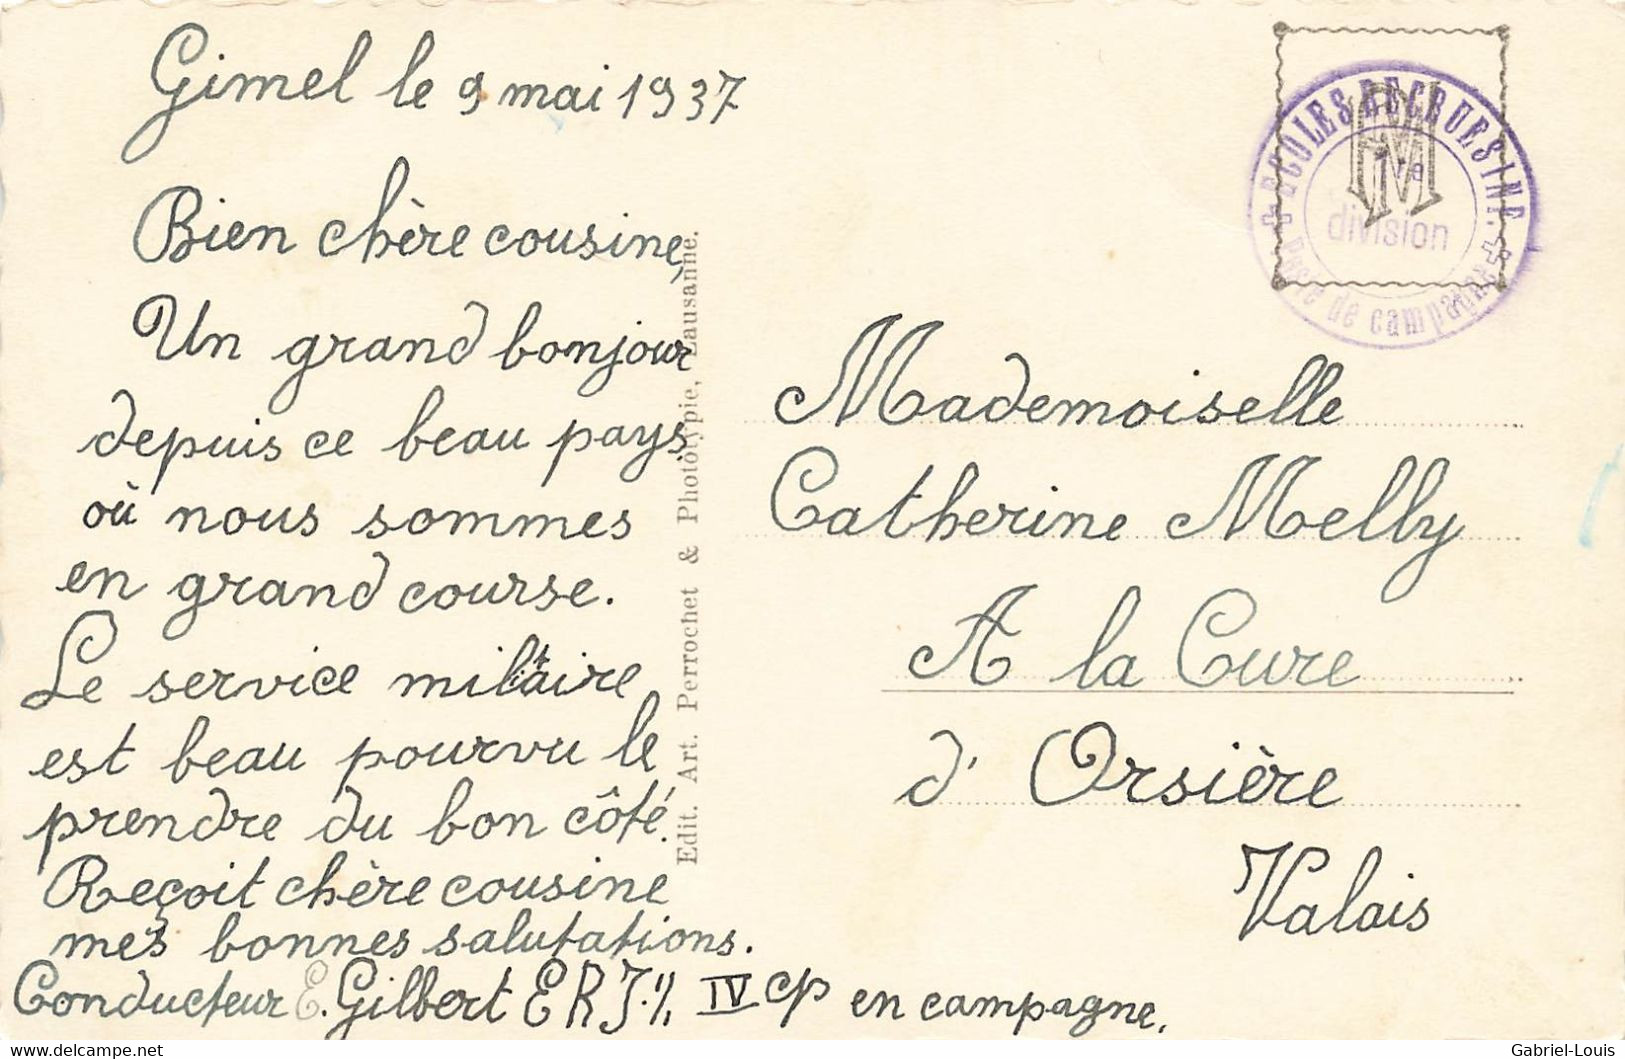 Gimel le 9 mai 1937
Bien chère cousine,
Un grand bonjour
depuis ce beau pays
où nous sommes
en grand course.
Le service militaire
est beau pourvu le
prendre du bon côté.
Reçoit chère cousine
mes bonnes salutations.
Conducteur E. Gilbert E R J. IV cp en campagne.
Edit. Art. Perrochet & Phototypie, Lausanne.
ECOLES RECRUES INF.
1re
division
Poste de campagne
Mademoiselle
Catherine Melly
A la Cure
d'Orsière
Valais
www.delcampe.net
Gabriel-Louis